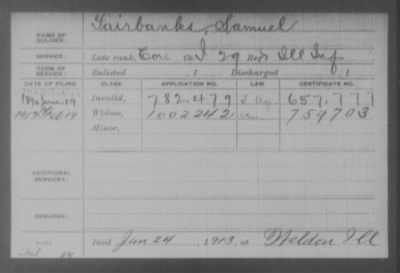 NAME OF SOLDIER: Fairbanks, Samuel
SERVICE: Late rank, Cor. Co. I, 29 Reg't Ill Inf
TERM OF SERVICE: Enlisted , 1 Discharged , 1
DATE OF FILING. CLASS. APPLICATION NO. LAW. CERTIFICATE NO.
Invalid, 782.479 657.777
Widow, 1002242 754703
Minor,
ADDITIONAL SERVICES:
REMARKS:
Died Jan 24, 1913, at Weldon Ill